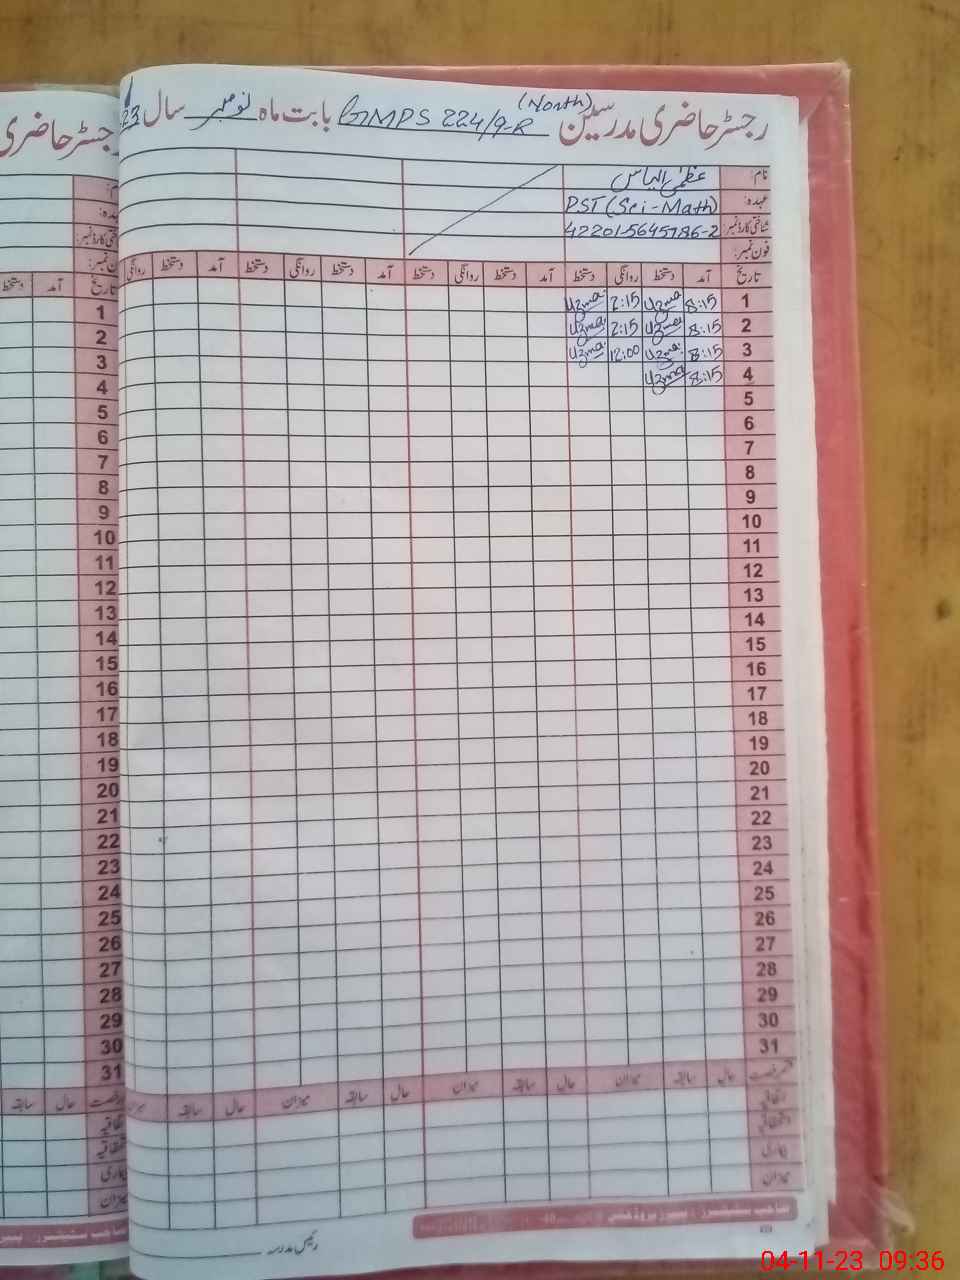 رجسٹر حاضری مدرسین (North) GMPS 224/9-R بابت ماہ نومبر سال 23
رجسٹر حاضری
نام: عظمیٰ الیاس
عہدہ: PST (Sci-Math)
شناختی کارڈ نمبر: 42201-5645786-2
فون نمبر:
تاریخ آمد دستخط روانگی دستخط آمد دستخط روانگی دستخط آمد دستخط روانگی دستخط آمد دستخط روانگی
1 8:15 Uzma 2:15 Uzma
2 8:15 Uzma 2:15 Uzma
3 8:15 Uzma 12:00 Uzma
4 8:15 Uzma
5
6
7
8
9
10
11
12
13
14
15
16
17
18
19
20
21
22
23
24
25
26
27
28
29
30
31
حال سابقہ میزان حال سابقہ میزان حال سابقہ میزان حال سابقہ میزان
اتفاقیہ
استحقاقیہ
بیماری
میزان
رئیس مدرسہ
تاریخ آمد دستخط
1
2
3
4
5
6
7
8
9
10
11
12
13
14
15
16
17
18
19
20
21
22
23
24
25
26
27
28
29
30
31
حال سابقہ
بیماری
میزان
04-11-23 09:36